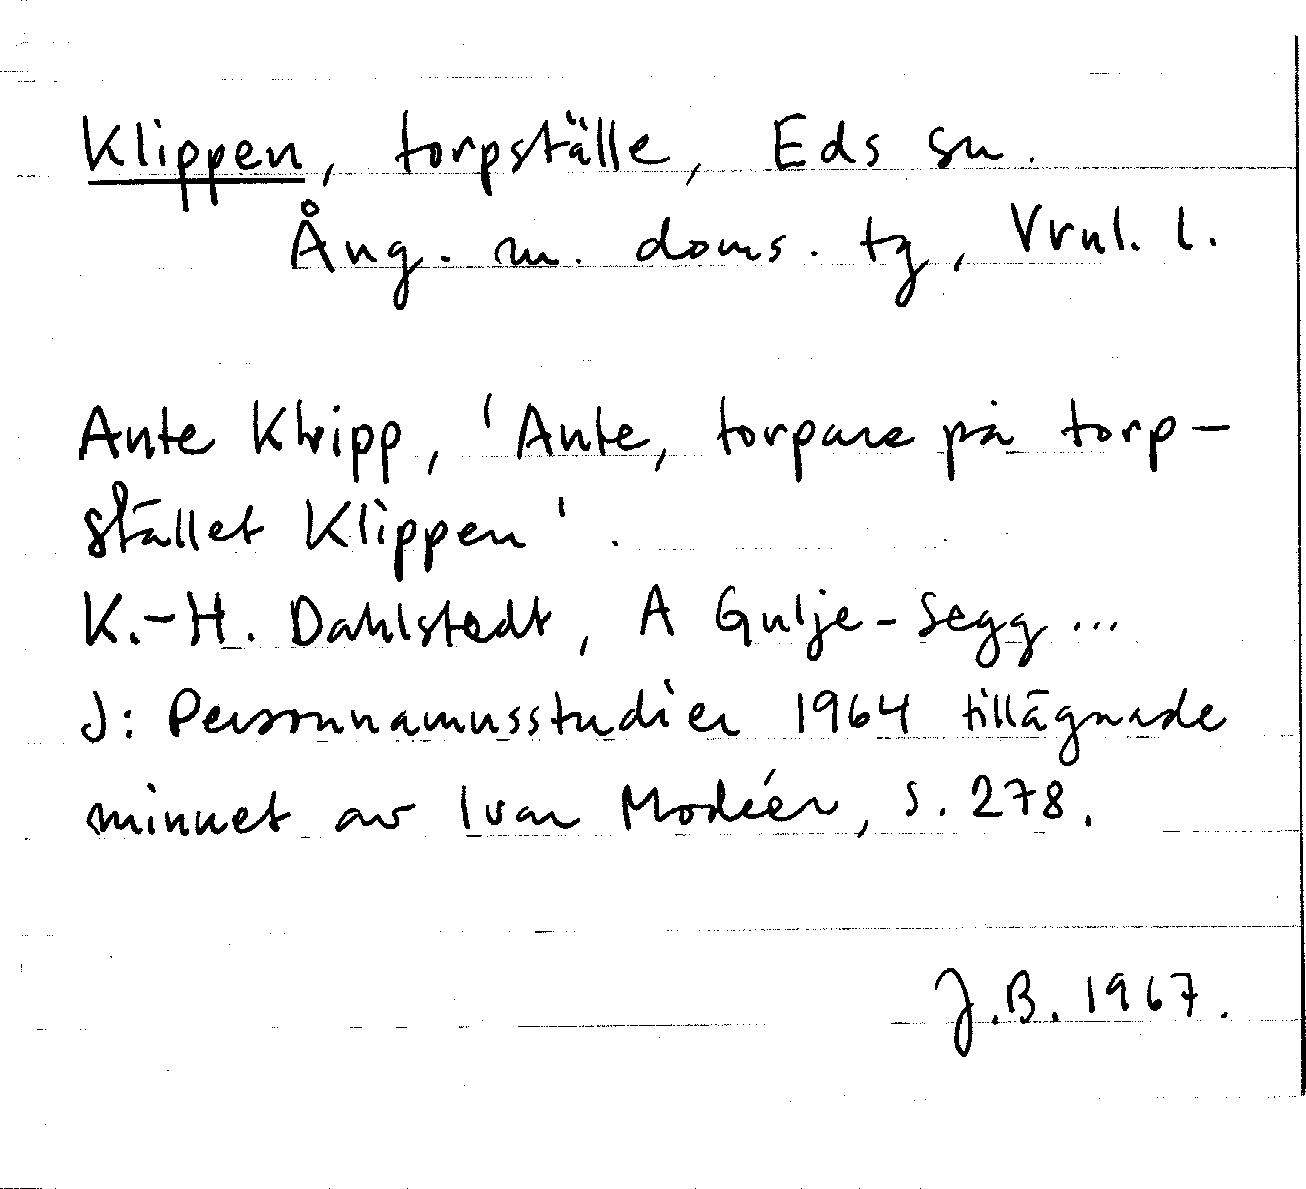 Klippen, torpställe, Eds sn.
Ång. m. doms. tg, Vrnl. l.
Ante Klipp, 'Ante, torpare på torp-
stället Klippen'.
K.-H. Dahlstedt, A Gulje-Segg ...
J: Personnamnsstudier 1964 tillägnade
minnet av Ivar Modéer, s. 278.
J.B. 1967.